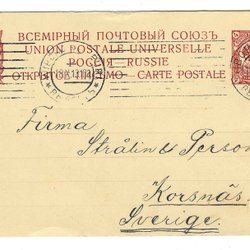 ВСЕМІРНЫЙ ПОЧТОВЫЙ СОЮЗЪ
UNION POSTALE UNIVERSELLE
RUSSIE
CARTE POSTALE
Firma
Strålin & Person
Korsnäs.
Sverige.